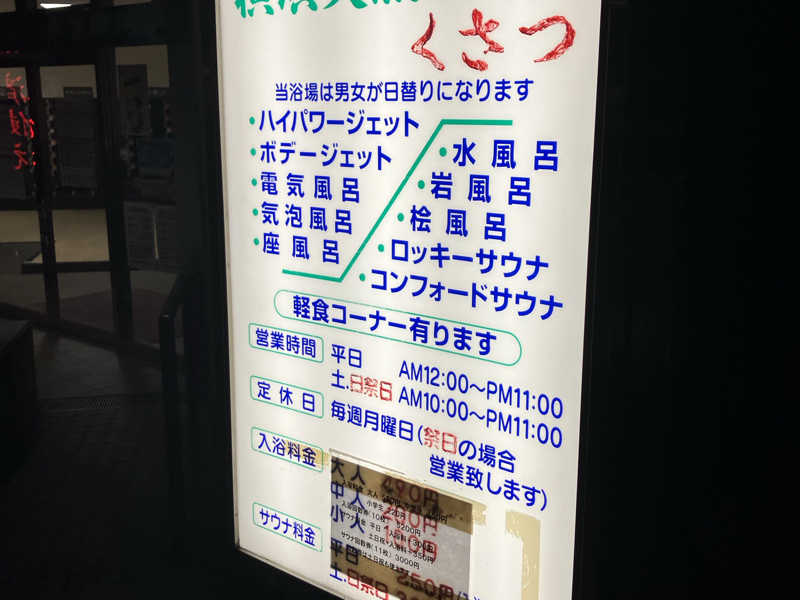 くさつ
当浴場は男女が日替りになります
・ハイパワージェット
・ボデージェット
・電気風呂
・気泡風呂
・座風呂
・水風呂
・岩風呂
・桧風呂
・ロッキーサウナ
・コンフォードサウナ
軽食コーナー有ります
営業時間
平日 AM12:00〜PM11:00
土.日祭日 AM10:00〜PM11:00
定休日
毎週月曜日(祭日の場合
営業致します)
入浴料金
大人
中人
小人
サウナ料金
平日
土.日祭日